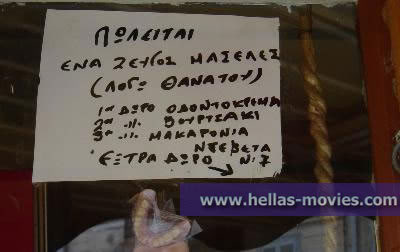 ΠΩΛΕΙΤΑΙ
ΕΝΑ ΖΕΥΓΟΣ ΜΑΣΕΛΕΣ
(ΛΟΓΩ ΘΑΝΑΤΟΥ)
1ον ΔΩΡΟ ΟΔΟΝΤΟΚΡΕΜΑ
2ον .//. ΒΟΥΡΤΣΑΚΙ
3ον .//. ΜΑΚΑΡΟΝΙΑ
ΝΤΕΒΕΤΑ
ΕΞΤΡΑ ΔΩΡΟ Ν. 7
www.hellas-movies.com